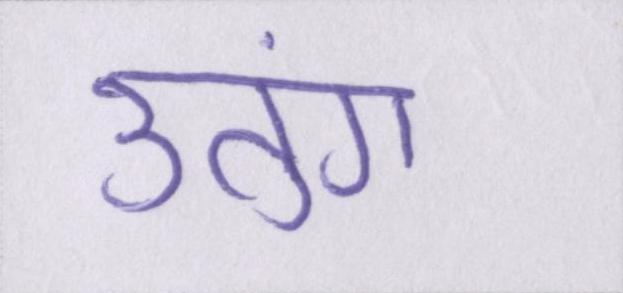 उतुंग